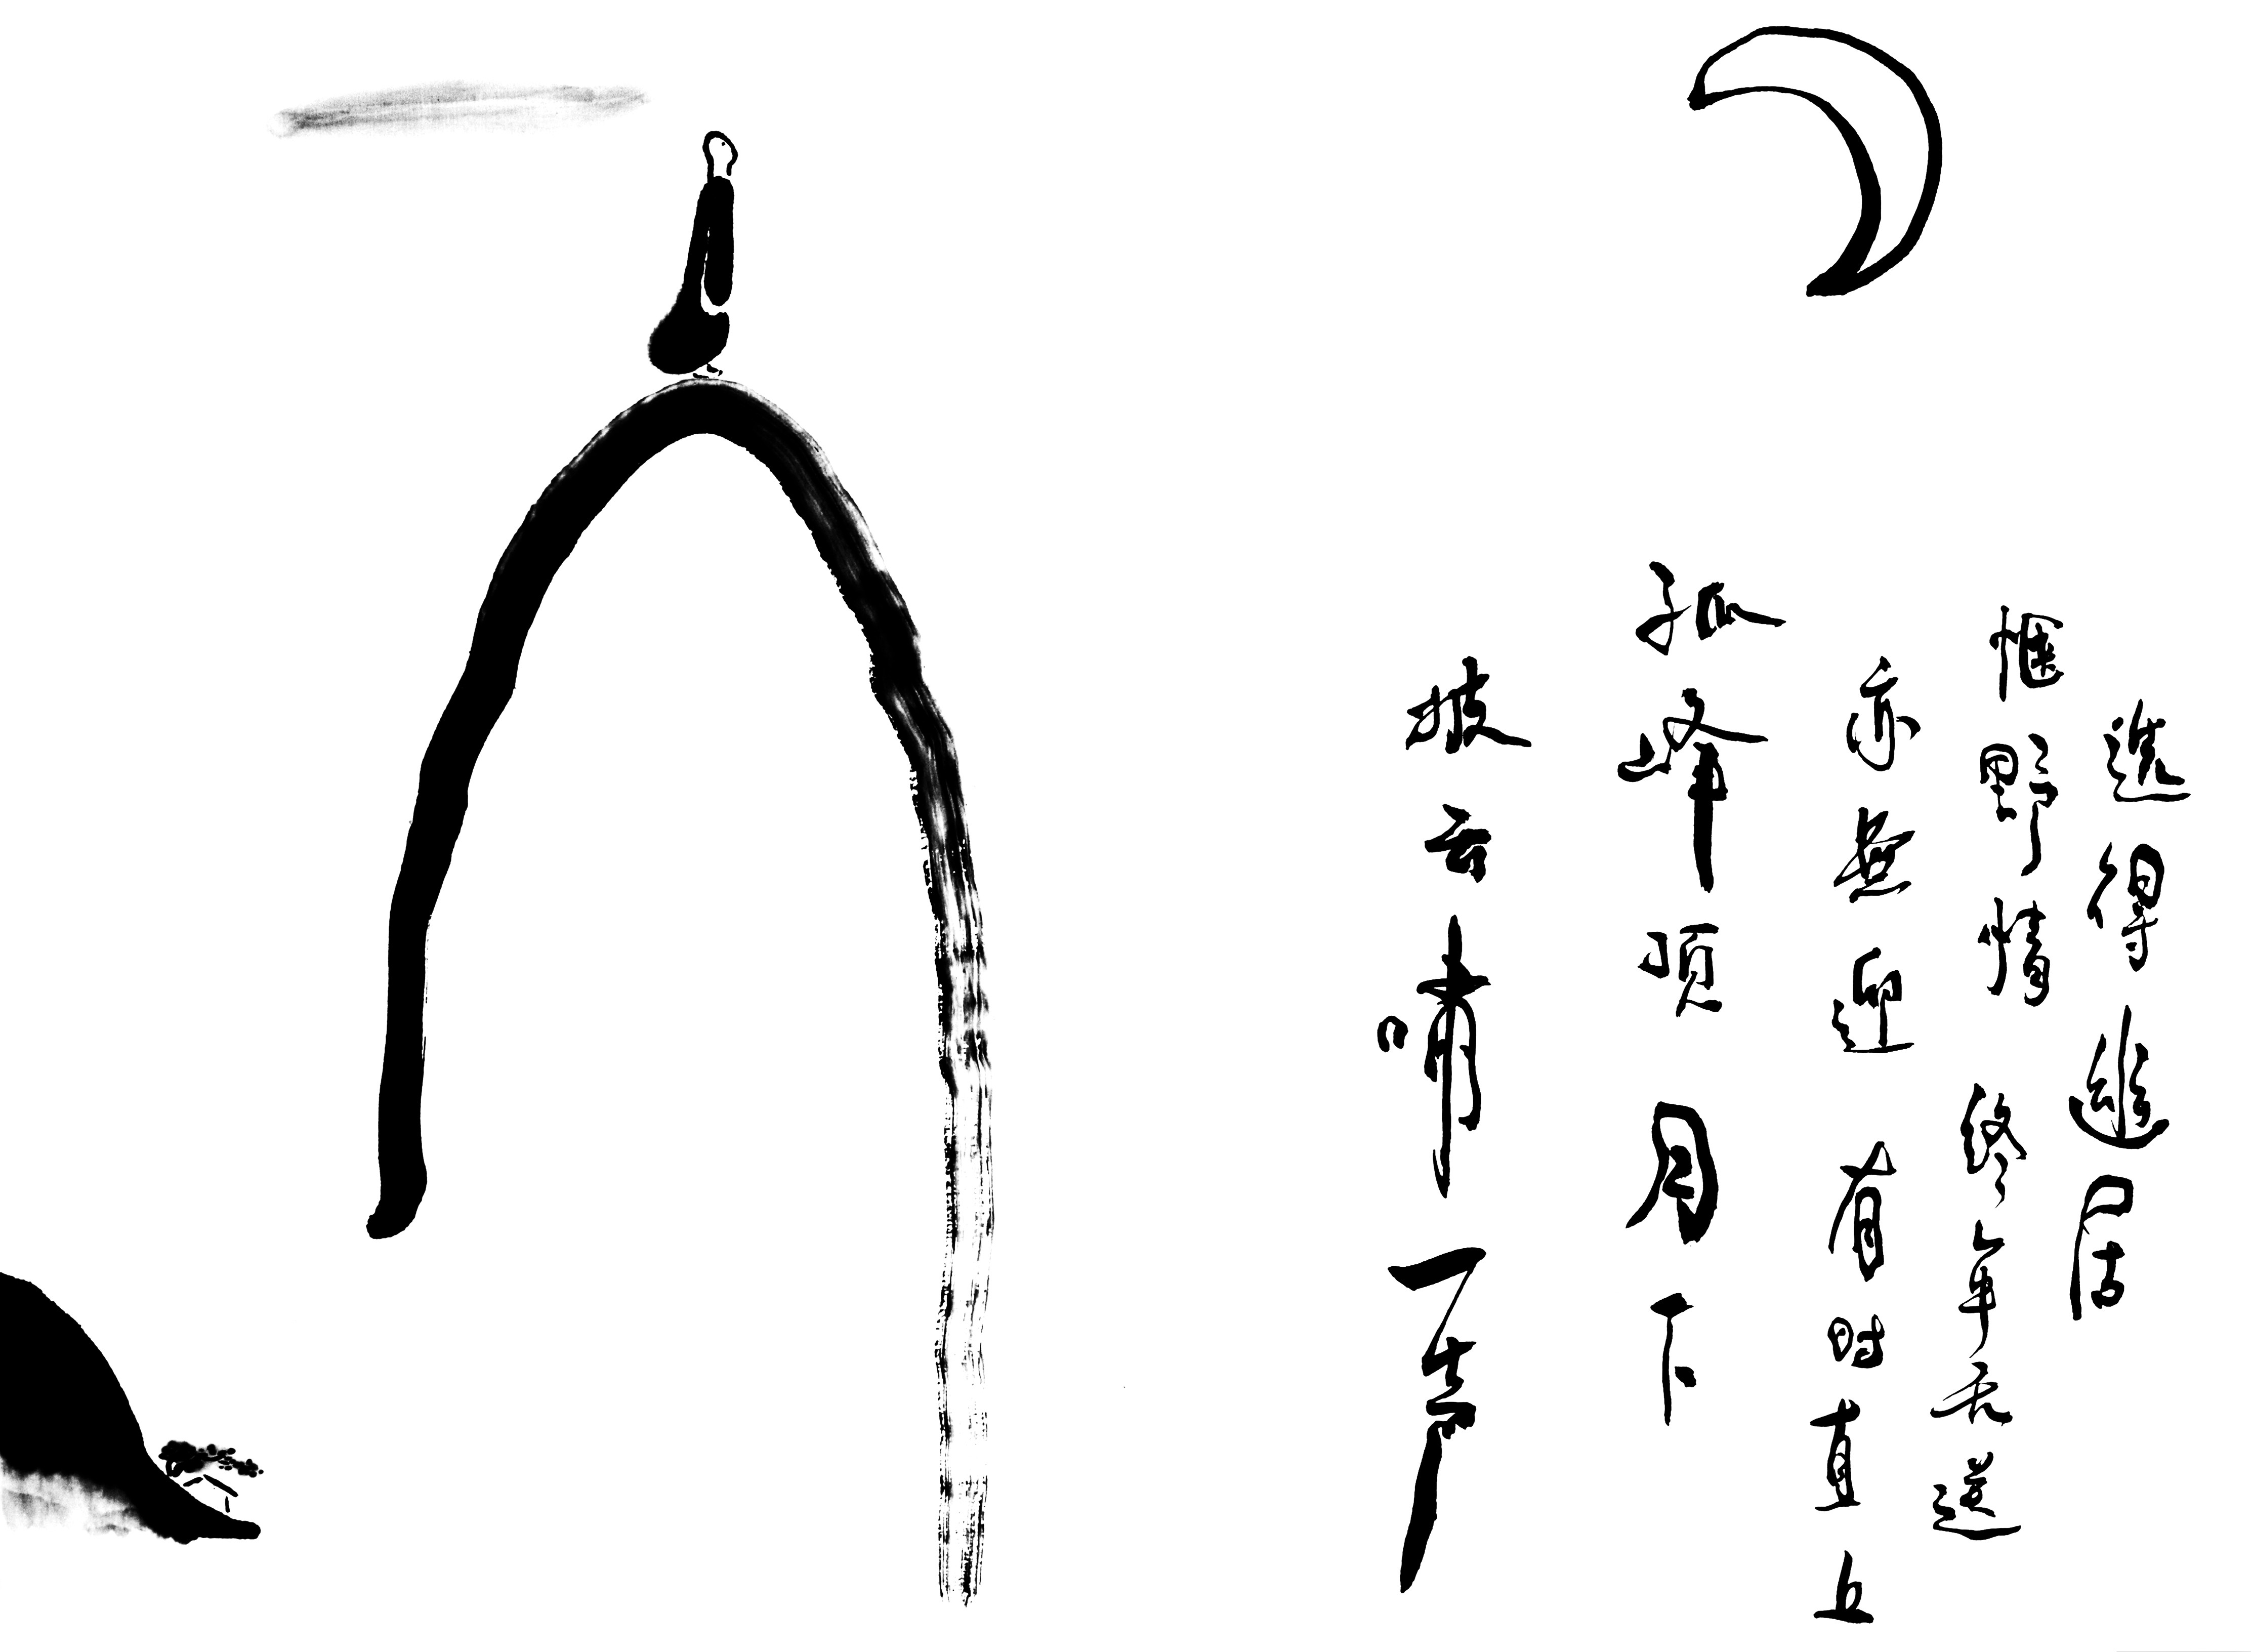 选得幽居
愜野情终年无送
亦無迎有时直上
孤峰頂月下
披云嘯一声